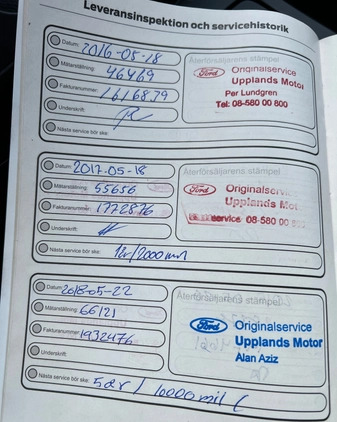 Leveransinspektion och servicehistorik
Datum: 2016-05-18
Mätarställning: 46469
Fakturanummer: 1616879
Underskrift:
Nästa service bör ske:
Återförsäljarens stämpel
Ford Originalservice
Upplands Motor
Per Lundgren
Tel: 08-580 00 800
Datum: 2017-05-18
Mätarställning: 55656
Fakturanummer: 1772876
Underskrift:
Nästa service bör ske: 1år/2000 mil
Återförsäljarens stämpel
Ford Originalservice
Upplands Mot
service 08-580 00
Datum: 2018-05-22
Mätarställning: 66121
Fakturanummer: 1932476
Underskrift:
Nästa service bör ske: 5år / 10000 mil
Återförsäljarens stämpel
Ford Originalservice
Upplands Motor
Alan Aziz